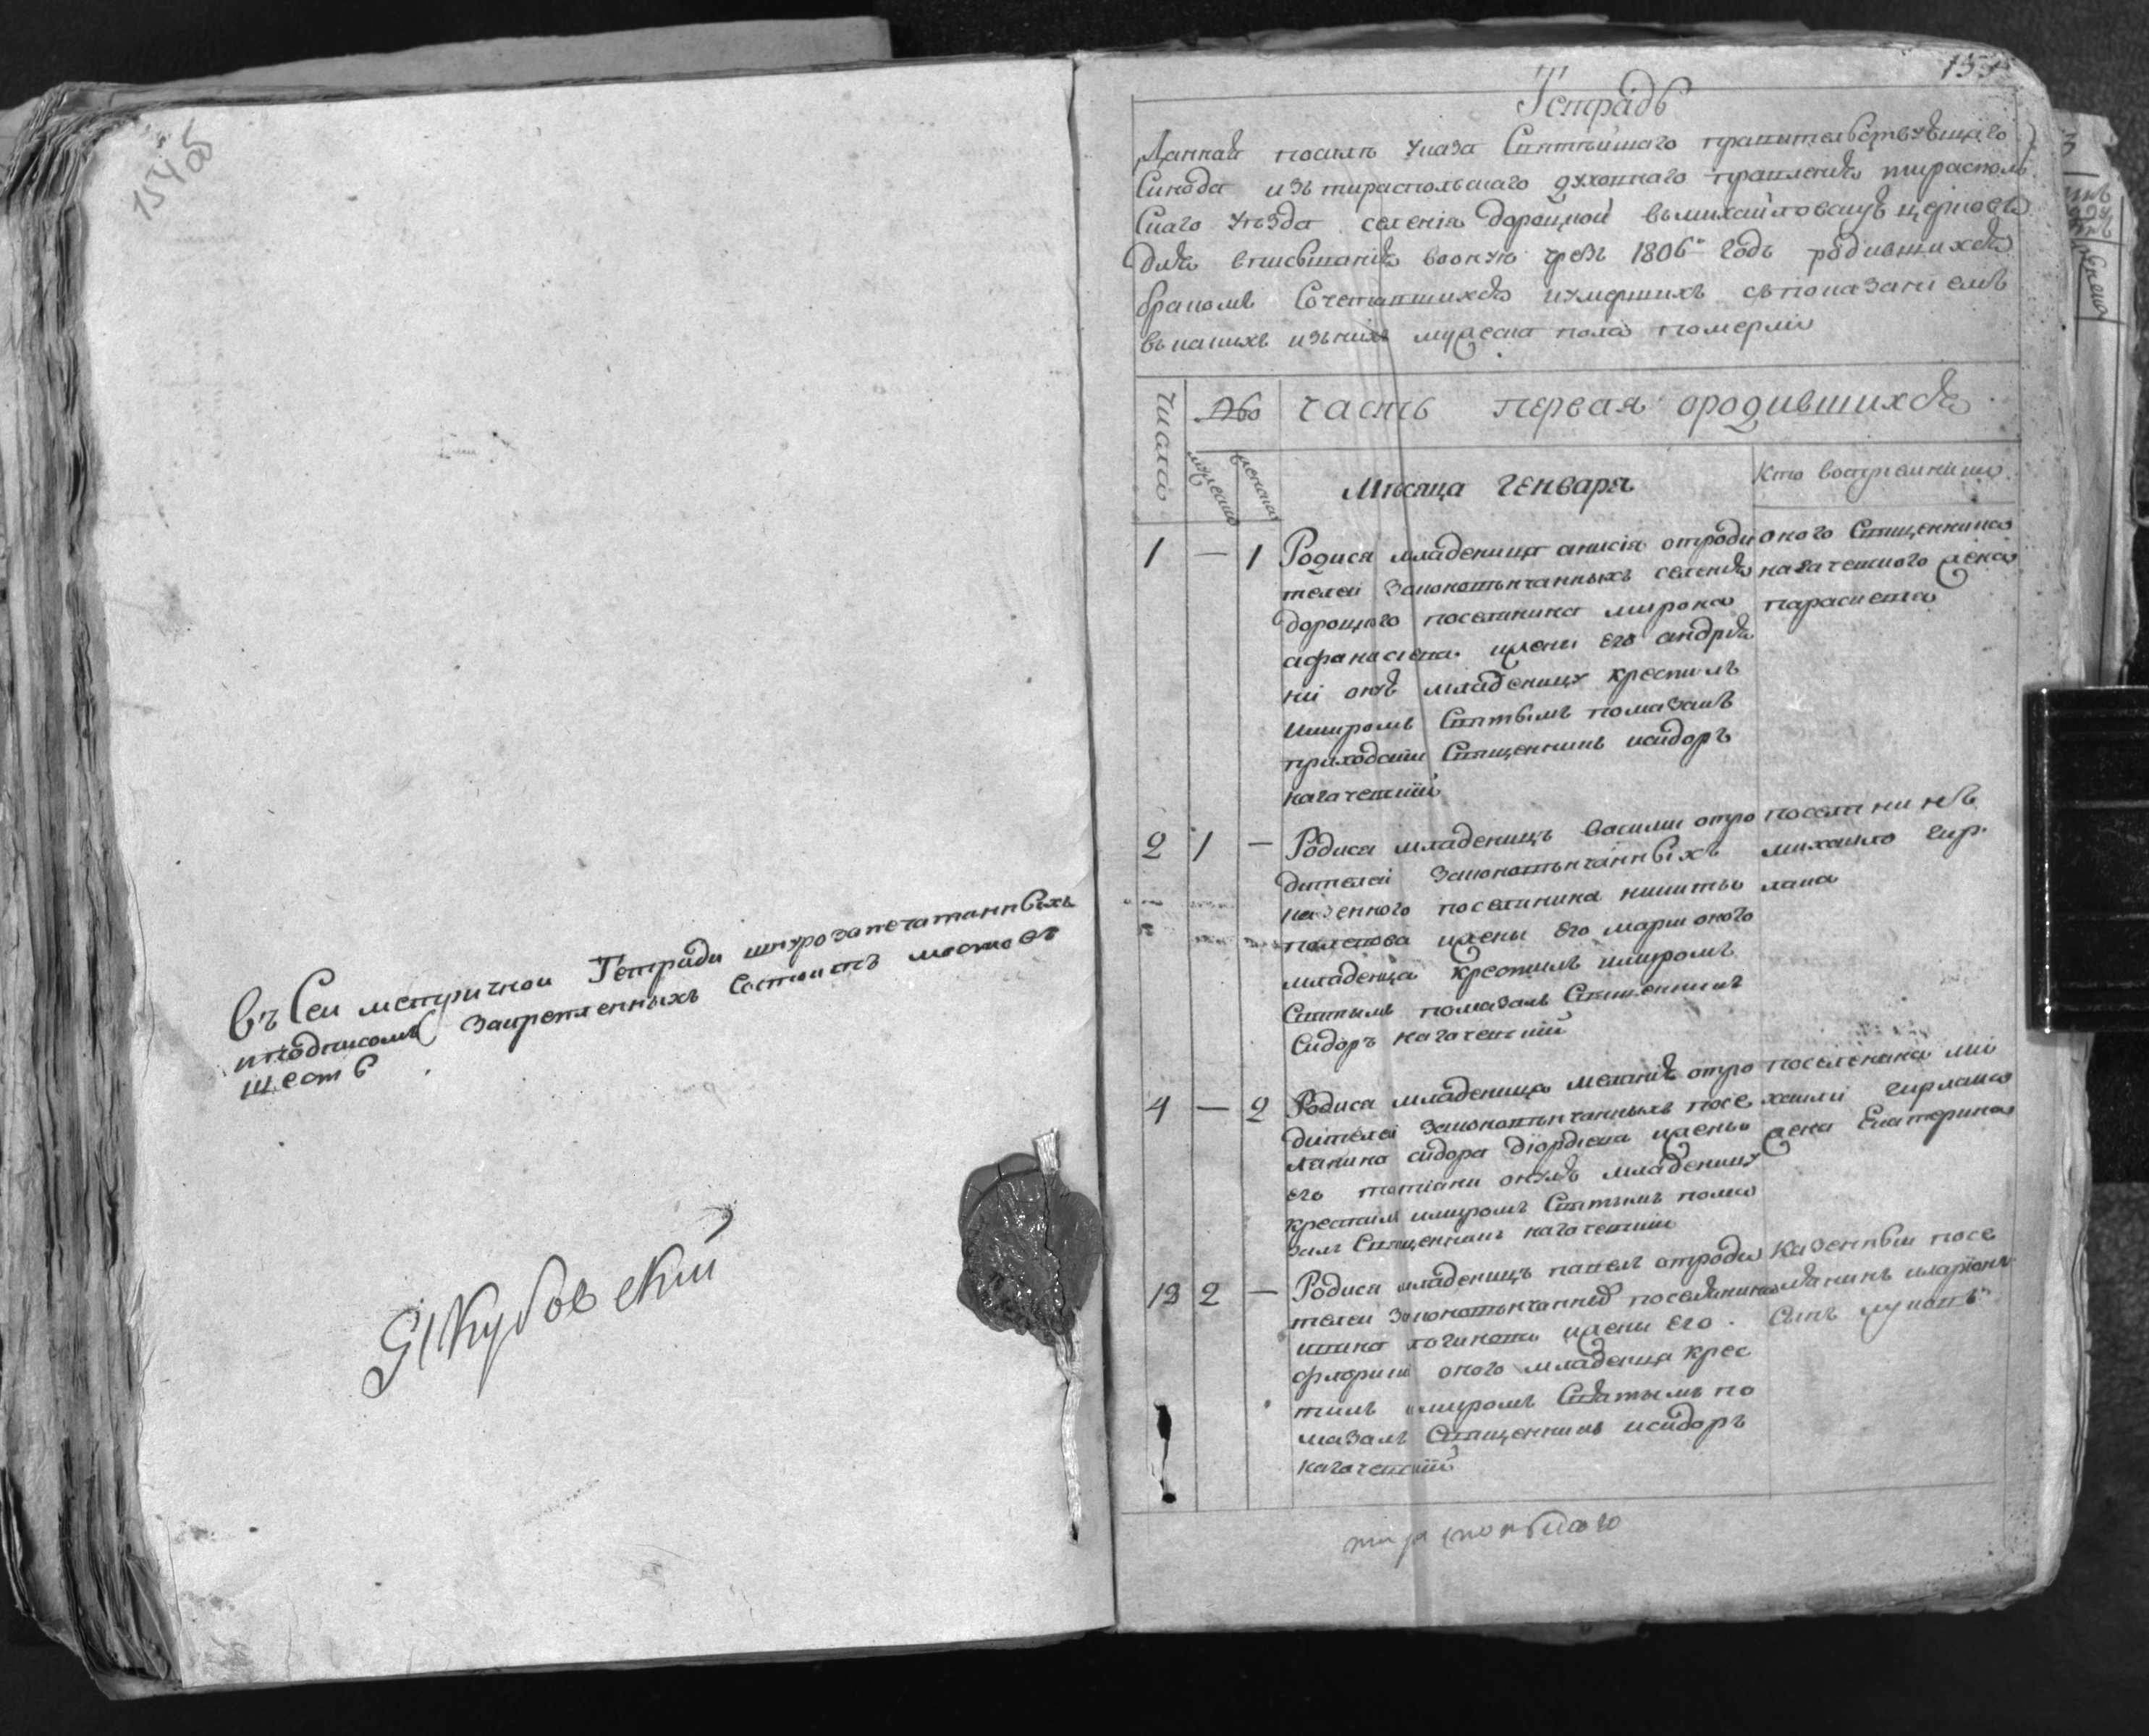 154об
Въ Сеи метричнои Тетради шнурозапечатанныхъ
иподписомъ Закрепленныхъ Состоитъ листов
шесть
Якубовский
155
Тетрадь
Данная посилѣ указа Святѣйшаго правительствующаго
Синода изъ тираспольскаго духовнаго правления тирасполь
Скаго уѣзда селенія дороцкой въмихайловскую церковь
Для вписывания воокую чрезъ 1806й годъ родившихся
бракомъ Сочетавшихся иумершихъ съпоказаніемъ
число
муска
женска
часть первая ородившихся
Мѣсяца Генваря
Кто восприемники
1 — 1 Родися младеница анисія отроди
телеи законовѣнчанныхъ селения
дороцкого поселянина мирона
афанасиева жены его андрия
ни оную младеницу крестилъ
имиромъ Святымъ помазалъ
приходский Священникъ исидоръ
нагачевский
оного Священника
нагачевского жена
параскева
2 1 — Родися младеницъ василии отро
дителеи законовѣнчанныхъ
казенного поселянина никиты
жены его марии оного
младенца крестилъ имиромъ
Святымъ помазалъ Священникъ
Сидоръ нагачевский
поселянинъ
михаило гир
лака
4 — 2 Родися младеница мелания отро
дителеи законовѣнчанныхъ посе
лянина сидора діордиева жены
его татіани оную младеницу
крестилъ имиромъ Святымъ пома
залъ Священникъ нагачевский
поселенина ми
хаили гирлака
жена Екатерина
13 2 — Родися младеницъ павелъ отроди
телеи законовѣнчанно поселянина
ивана логинова жены его
флории оного младенца крес
тилъ имиромъ Святымъ по
мазалъ Священникъ исидоръ
нагачевский
казенныи посе
лянинъ иларіонъ
сынъ
тираспольскаго